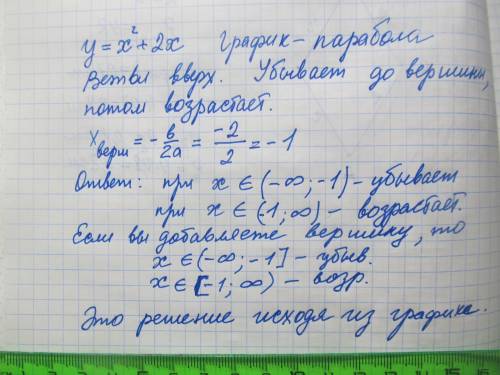 y = x² + 2x График – парабола
Ветви вверх. Убывает до вершины,
потом возрастает.
x верш = - в/2a = -2/2 = -1
Ответ: при x ∈ (-∞; -1) – убывает
при x ∈ (-1; ∞) – возрастает.
Если вы добавляете вершину, то
x ∈ (-∞; -1] – убыв.
x ∈ [-1; ∞) – возр.
Это решение исходя из графика.